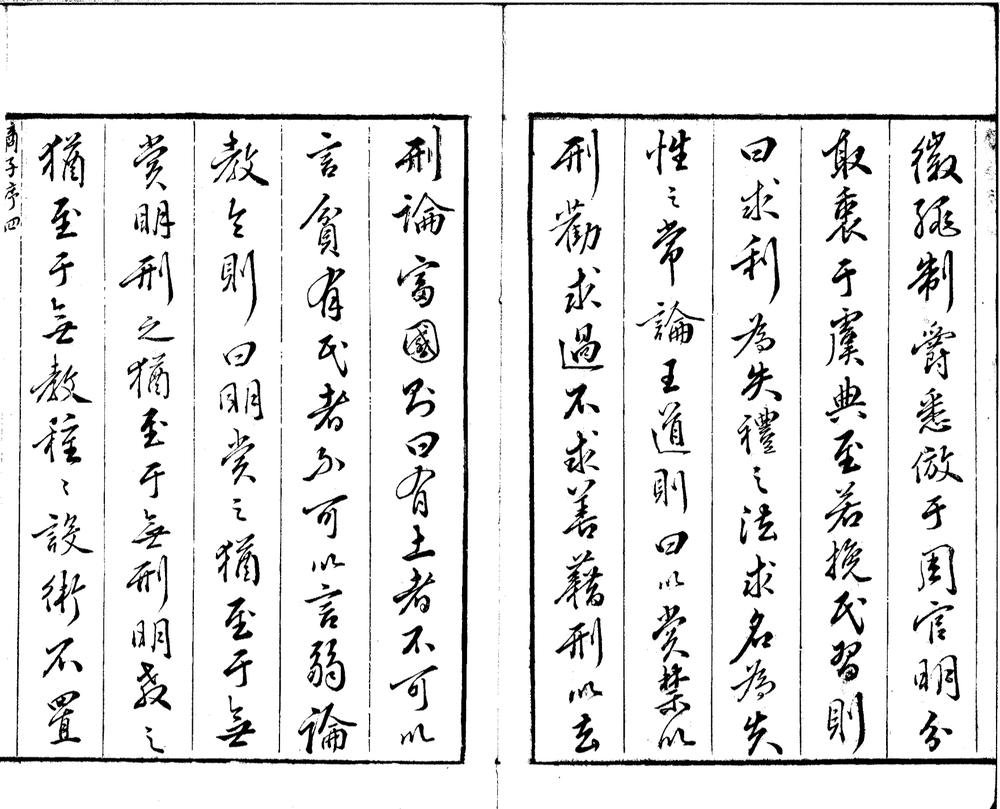 徽繇制爵悉倣于周官明分
取裏于虞典至若挽民習則
曰求利為失禮之法求名為失
性之常論王道則曰以賞禁以
刑勸求過不求善藉刑以去
刑論富國則曰有土者不可以
言貧有民者不可以言弱論
教令則曰明賞之猶至于無
賞明刑之猶至于無刑明教之
猶至于無教種〻設術不置
商子序 四